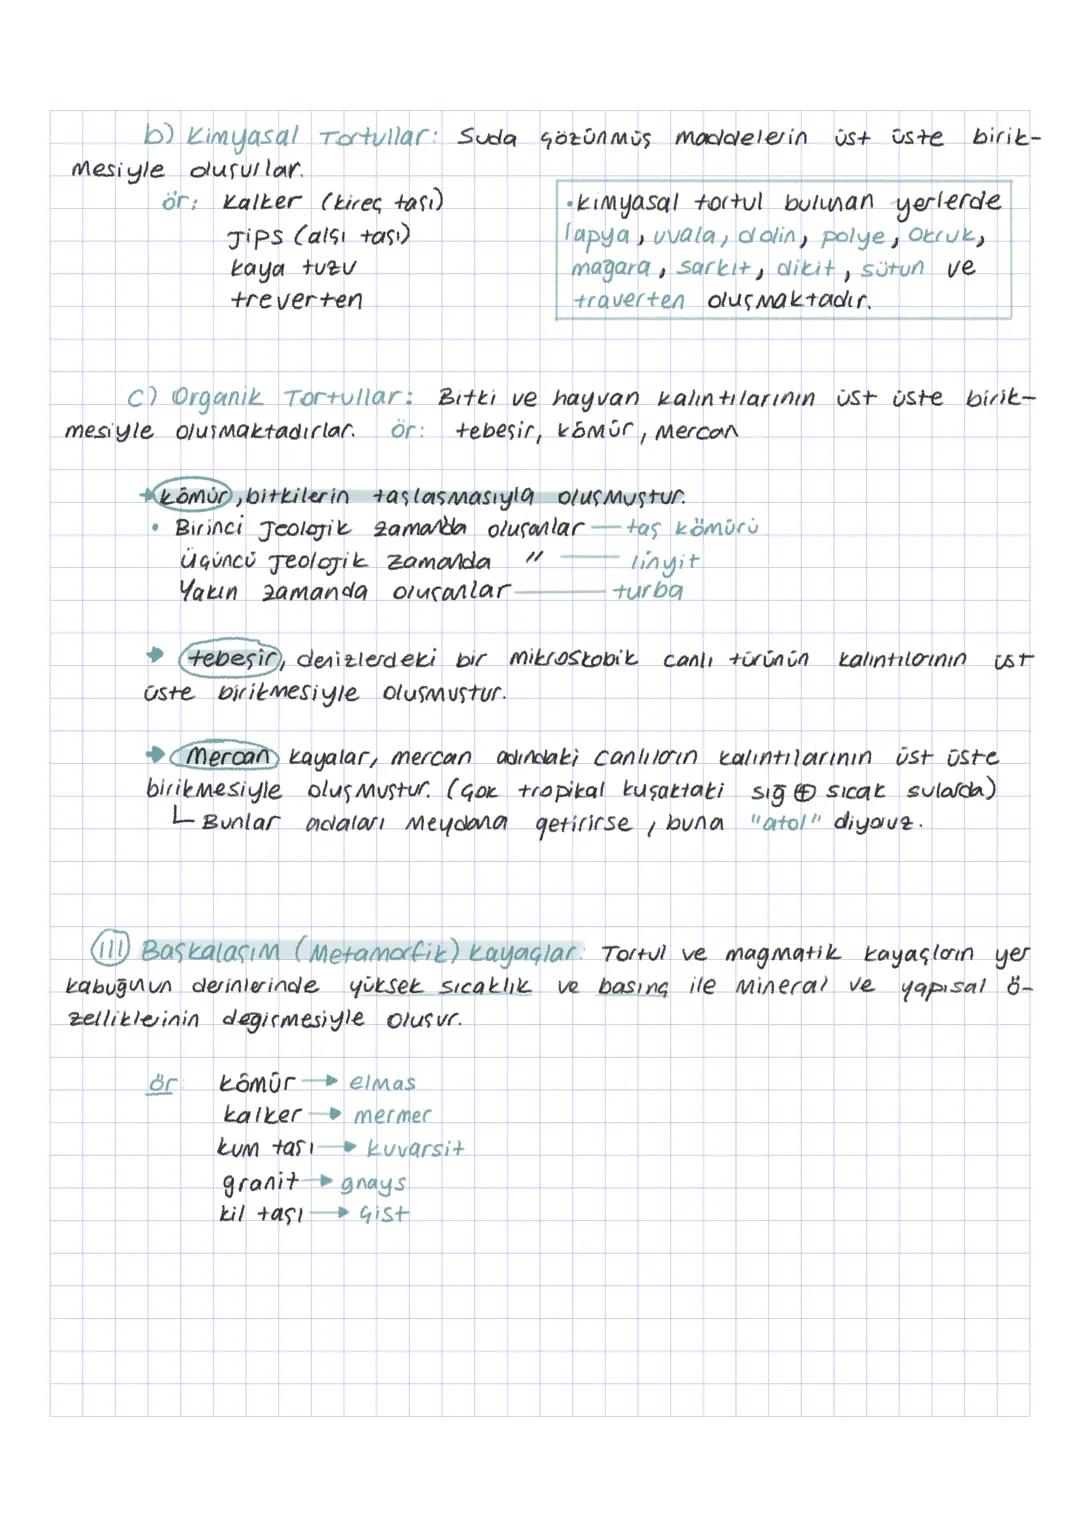 b) Kimyasal Tortullar: Suda çözünmüş maddelerin üst üste birik-
mesiyle oluşurlar.
ör: Kalker (kireç taşı)
Jips (alçı taşı)
kaya tuzu
treverten
• Kimyasal tortul bulunan yerlerde
lapya, uvala, dolin, polye, obruk,
mağara, sarkıt, dikit, sütun ve
traverten oluşmaktadır.
C) Organik Tortullar: Bitki ve hayvan kalıntılarının üst üste birik-
mesiyle oluşmaktadırlar. ör: tebeşir, kömür, Mercan
→ kömür, bitkilerin taşlaşmasıyla oluşmuştur.
• Birinci Jeolojik zamanda oluşanlar — taş kömürü
Üçüncü Jeolojik zamanda " — linyit
Yakın zamanda oluşanlar — turba
→ tebeşir, denizlerdeki bir mikroskobik canlı türünün kalıntılarının üst
üste birikmesiyle oluşmuştur.
→ Mercan kayalar, mercan adındaki canlıların kalıntılarının üst üste
birikmesiyle oluşmuştur. (Çok tropikal kuşaktaki sığ ⊕ sıcak sularda)
└ Bunlar adaları meydana getirirse, buna "atol" diyoruz.
III Başkalaşım (Metamorfik) Kayaçlar: Tortul ve magmatik kayaçların yer
kabuğunun derinlerinde yüksek sıcaklık ve basınç ile mineral ve yapısal ö-
zelliklerinin değişmesiyle oluşur.
ör: kömür → elmas
kalker → mermer
kum taşı → kuvarsit
granit → gnays
kil taşı → şist